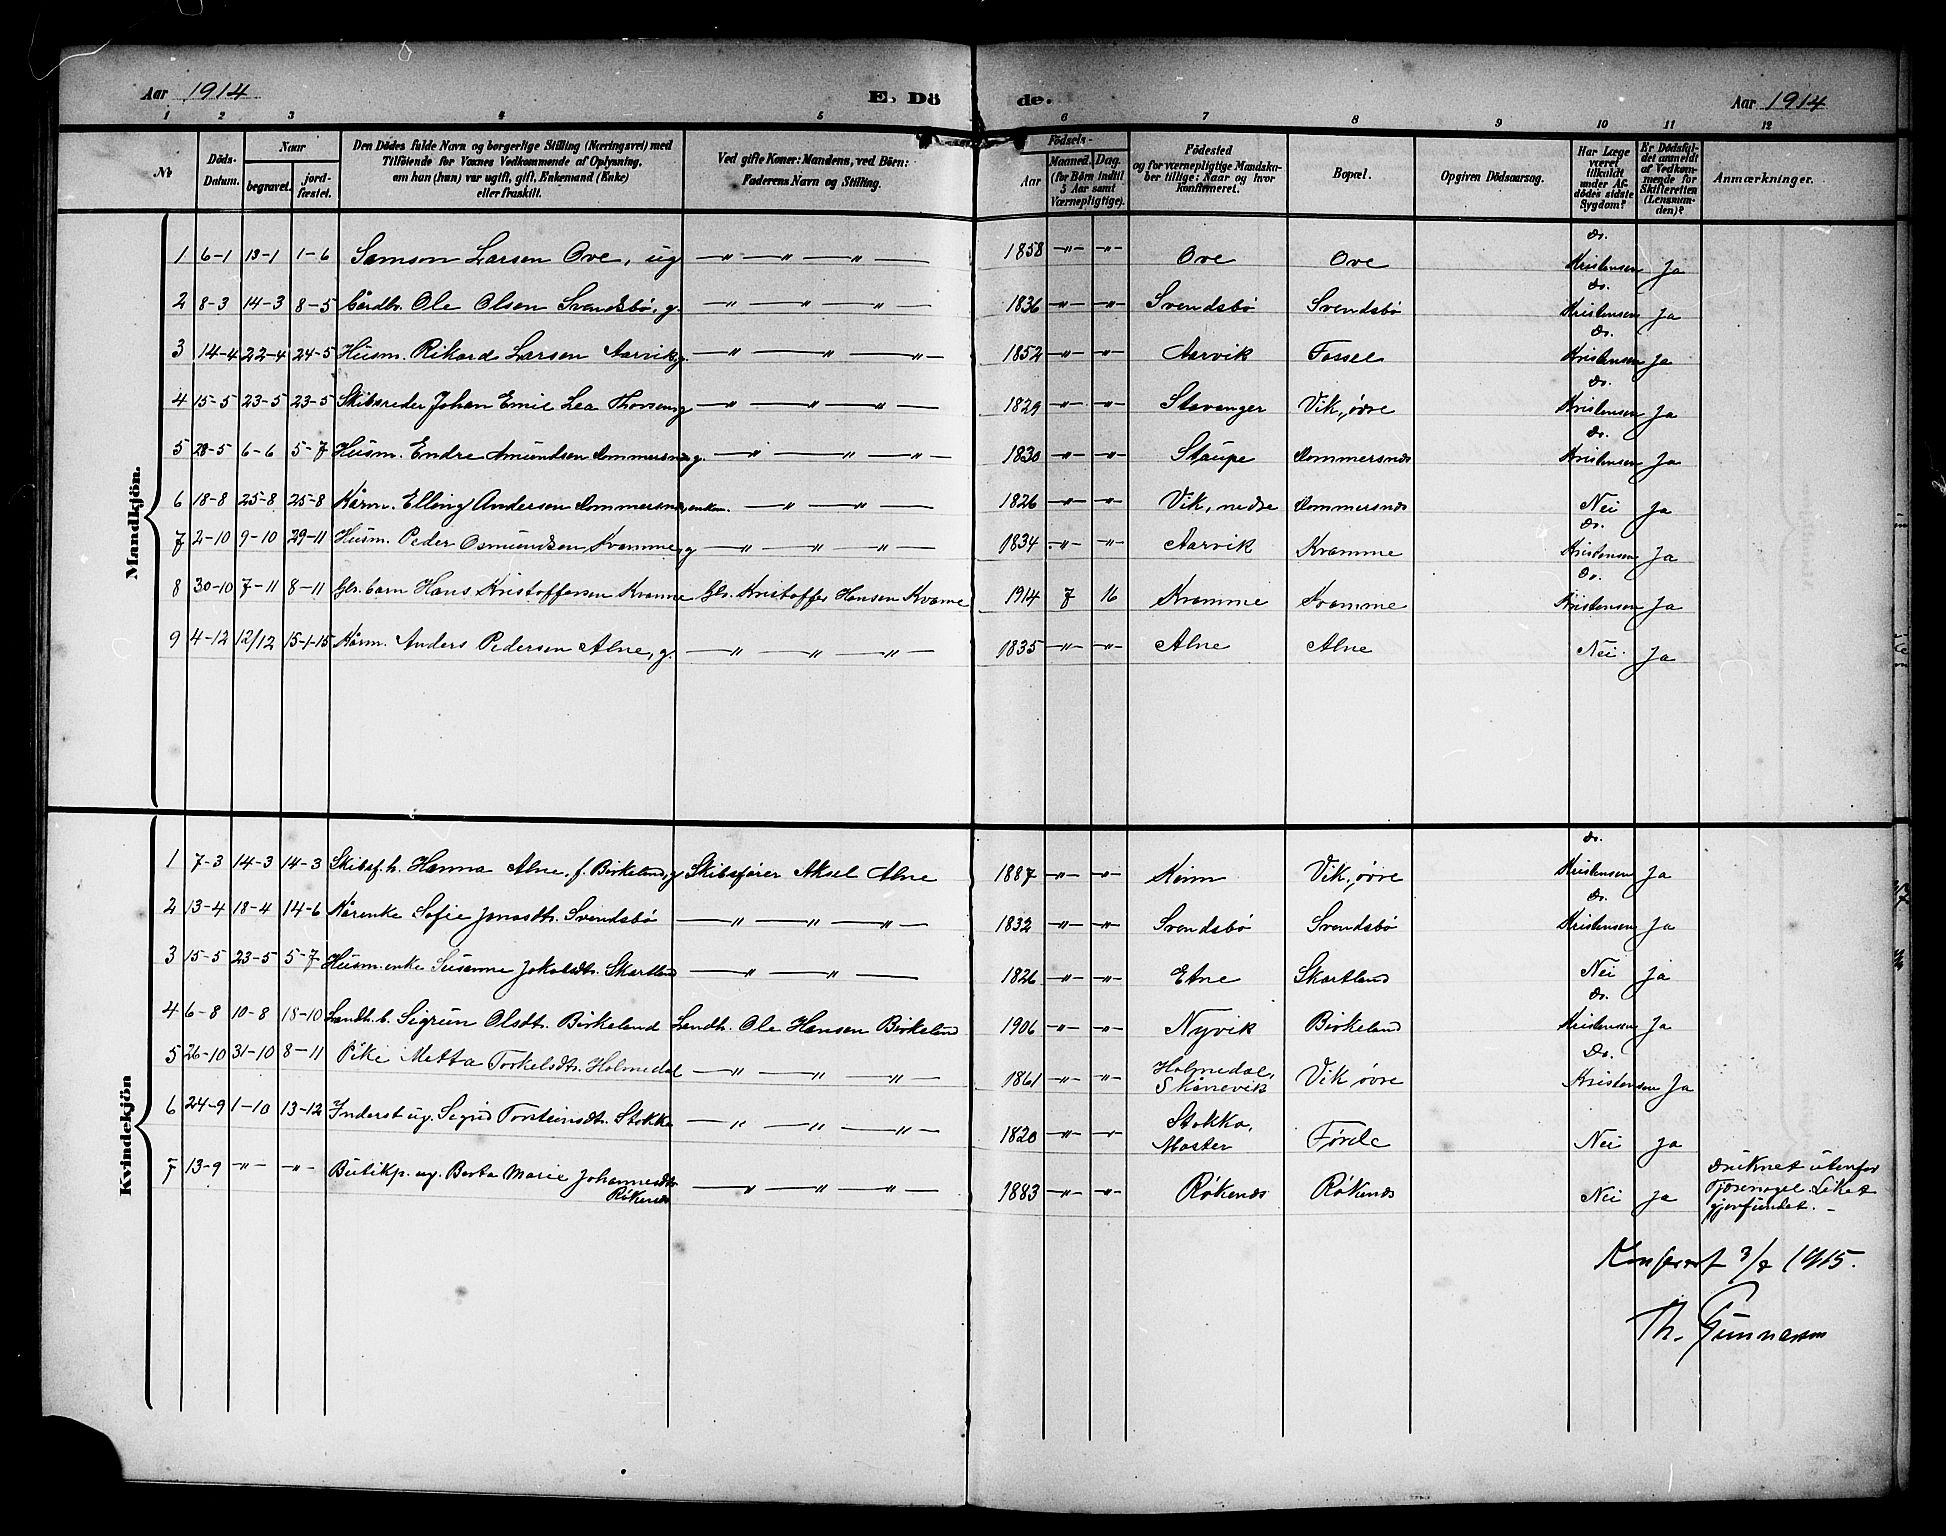 Aar 1914 E. Döde. Aar 1914
1 2 3 4 5 6 7 8 9 10 11 12
No
Döds-Datum.
Naar
begravet.
jordfæstet.
Den Dödes fulde Navn og borgerlige Stilling (Næringsvei) med
Tilföiende for Voxnes Vedkommende af Oplysning,
om hun (han) var ugift, gift, Enkemand (Enke)
eller fraskilt.
Ved gifte Koner: Mandens, ved Börn:
Faderens Navn og Stilling.
Födsels-
Aar
Maaned. Dag.
(for Börn indtil
5 Aar samt
Værnepligtige).
Födested
og for værnepligtige Mandskaber tillige: Naar og hvor
konfirmeret.
Bopæl.
Opgiven Dödsaarsag.
Har Læge
været
tilkaldt
under Afdödes sidste
Sygdom?
Er Dödsfaldet anmeldt
af Vedkommende for
Skifteretten
(Lensmanden)?
Anmærkninger.
Mandkjön.
1 6-1 13-1 1-6 Samson Larsen Ove, ug —"—"—"— 1858 -"- -"- Ove Ove Dr. Kristensen Ja
2 8-3 14-3 8-5 Gårdbr. Ole Olsen Svendsbö, g. —"—"—"— 1836 -"- -"- Svendsbö Svendsbö Dr. Kristensen Ja
3 14-4 22-4 24-5 Husm. Rikard Larsen Aarvik, g —"—"—"— 1852 -"- -"- Aarvik Fosse Dr. Kristensen Ja
4 15-5 23-5 23-5 Skibsreder Johan Emil Lea Thorsen, g —"—"—"— 1829 -"- -"- Stavanger Vik, övre Dr. Kristensen Ja
5 28-5 6-6 5-7 Husm. Endre Amundsen Dommersnæs, g. —"—"—"— 1830 -"- -"- Staupe Dommersnæs Dr. Kristensen Ja
6 18-8 25-8 25-8 Kårm. Elling Andersen Dommersnæs, enkem. —"—"— 1826 -"- -"- Vik, nedre Dommersnæs Nei Ja
7 2-10 9-10 29-11 Husm. Peder Osmundsen Kvamme, g —"—"—"— 1834 -"- -"- Aarvik Kvamme Dr. Kristensen Ja
8 30-10 7-11 8-11 Gbr. barn Hans Kristoffersen Kvamme Gbr. Kristoffer Hansen Kvamme 1914 7 16 Kvamme Kvamme Dr. Kristensen Ja
9 4-12 12/12 15-1-15 Kårm. Anders Pedersen Alne, g. —"—"—"— 1835 -"- -"- Alne Alne Nei Ja
Kvindekjön
1 7-3 14-3 14-3 Skibsf. h. Hanna Alne, f. Birkeland, g Skibsfører Aksel Alne 1887 -"- -"- Vik, övre Dr. Kristensen Ja
2 13-4 18-4 14-6 Kårenke Sofie Jonasdtr. Svendsbö —"—"—"— 1832 -"- -"- Svendsbö Svendsbö Dr. Kristensen Ja
3 15-5 23-5 5-7 Husm. enke Susanne Jakobsdtr. Skartland —"—"— 1826 -"- -"- Etne Skartland Nei Ja
4 6-8 10-8 18-10 Landh. b. Sigrun Olsdtr. Birkeland Landh. Ole Hansen Birkeland 1906 -"- -"- Nyvik Birkeland Dr. Kristensen Ja
5 26-10 31-10 8-11 Pike Metta Torkelsdtr. Holmedal —"—"—"— 1861 -"- -"- Holmedal, Skånevik Vik övre Dr. Kristensen Ja
6 24-9 1-10 13-12 Inderst ug. Sigrid Torsteinsdtr. Stokka —"—"—"— 1820 -"- -"- Stokka, Moster Førde Nei Ja
7 13-9 -"- -"- Butikp. ug. Berta Marie Johannesdtr. Rökenæs —"—"—"— 1883 -"- -"- Rökenæs Rökenæs Nei Ja Druknet utenfor
Tjernagel. Liket
gjenfundet. —
Konferert 3/2 1915.
Th. Gunnarson